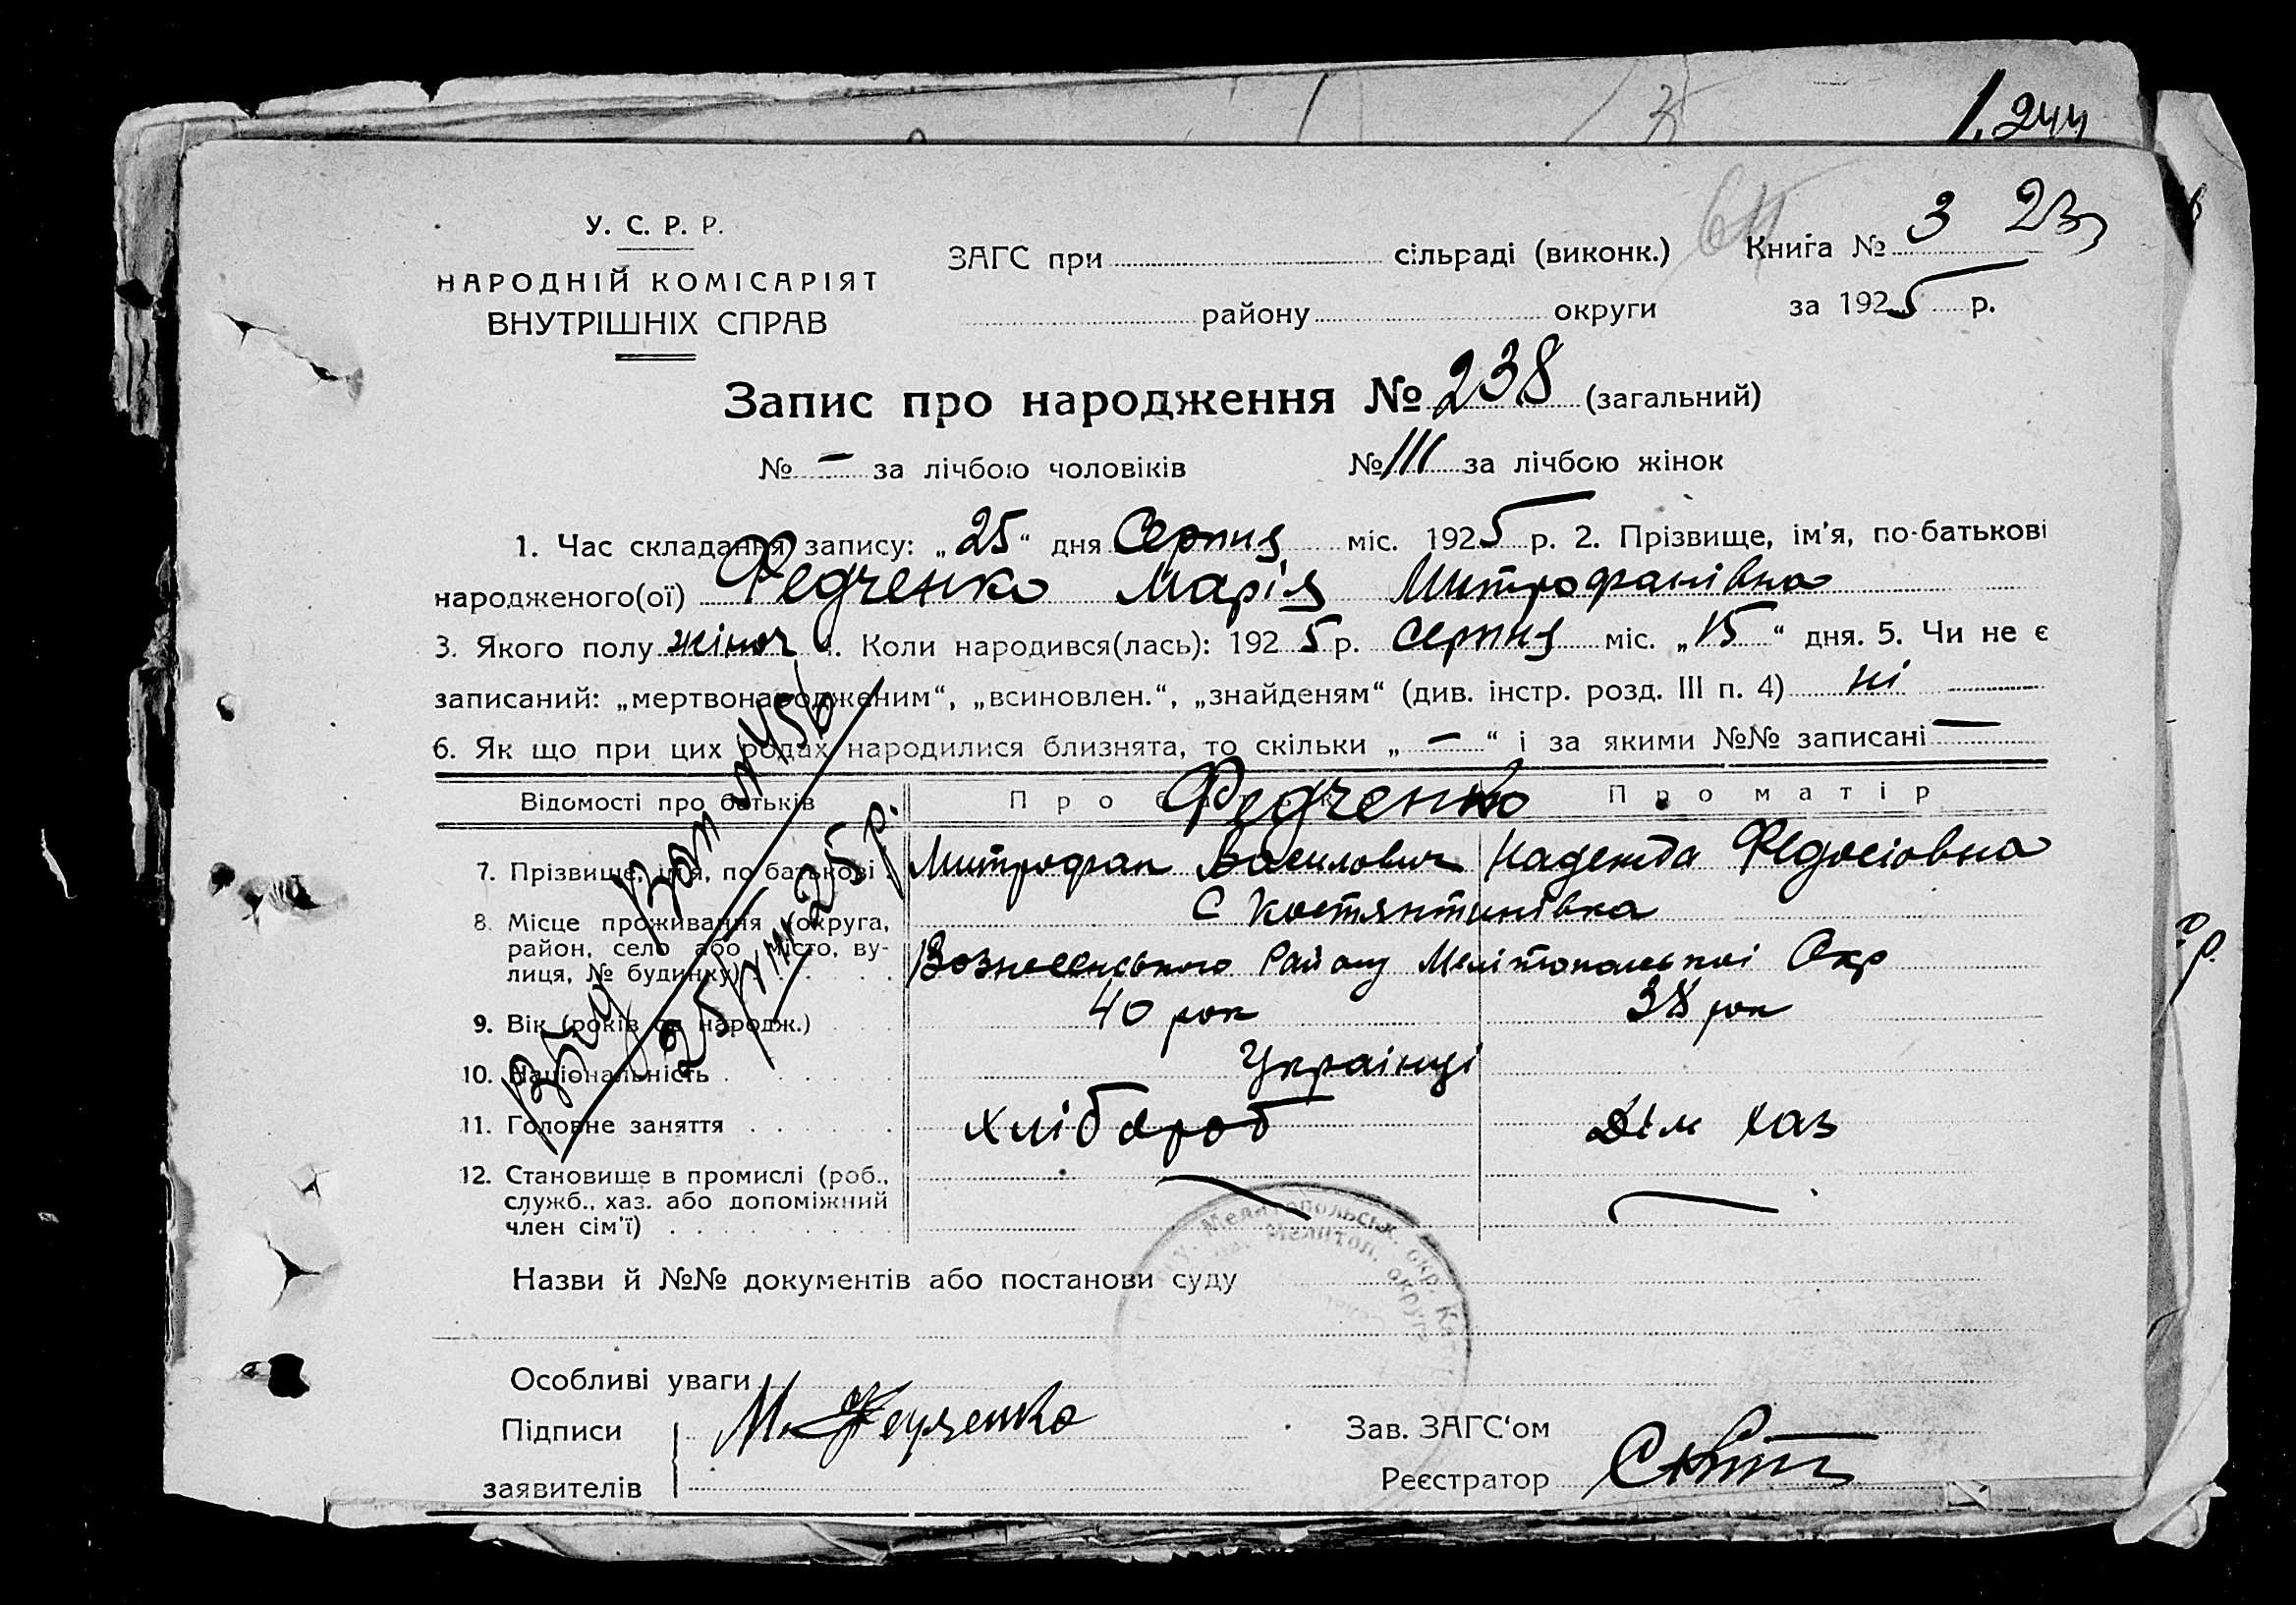 1, 244
У. С. Р. Р.
НАРОДНІЙ КОМІСАРІЯТ
ВНУТРІШНІХ СПРАВ
ЗАГС при сільраді (виконк.)
району округи
64 Книга № 3 23
за 1925 р.
Запис про народження № 238 (загальний)
№ — за лічбою чоловіків № 111 за лічбою жінок
1. Час складання запису: „25“ дня Серпня міс. 1925 р. 2. Прізвище, ім'я, по-батькові
народженого(ої) Федченко Марія Митрофанівна
3. Якого полу жіноч 4. Коли народився(лась): 1925 р. серпня міс. „15“ дня. 5. Чи не є
записаний: „мертвонародженим“, „всиновлен.“, „знайденям“ (див. інстр. розд. III п. 4) ні
6. Як що при цих родах народилися близнята, то скільки „ — “ і за якими №№ записані —
Відомості про батьків Про батька Про матір
Федченко
7. Прізвище, ім'я, по батькові . Митрофан Василович Надежда Федосіовна
8. Місце проживання (округа, район, село або місто, вулиця, № будинку) . . . . С Костянтинівка
Вознесенського Району Мелітопольської Окр
9. Вік (років од народж.) . . 40 рок 38 рок
10. Національність . . . . . Українці
11. Головне заняття . . . . . хлібороб Дім хаз
12. Становище в промислі (роб., служб., хаз. або допоміжний член сім'ї) . . . . . . . — —
25/VIII 25 р.
Назви й №№ документів або постанови суду
Мелитопольськ. окр.
Мелитоп. округа
Особливі уваги
Підписи
заявителів
М. Федченко
Зав. ЗАГС‘ом
Реєстратор